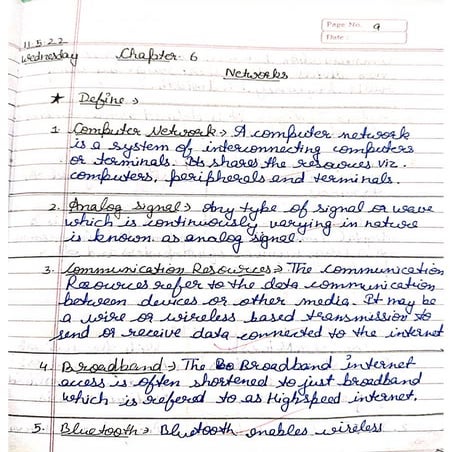 Page No. 9
Date:
11.5.22
Wednesday
Chapter 6
Networks
★ Define →
1. Computer Network → A computer network
is a system of interconnecting computers
or terminals. Its shares the resources viz.
computers, peripherals and terminals.
2. Analog signal → Any type of signal or wave
which is continuously varying in nature
is known as analog signal.
3. Communication Resources → The communication
Resources refer to the data communication
between devices or other media. It may be
a wire or wireless based transmission to
send or receive data connected to the internet
4. Broadband → The Broadband internet
access is often shortened to just broadband
which is refered to as Highspeed internet.
5. Bluetooth → Bluetooth enables wireless